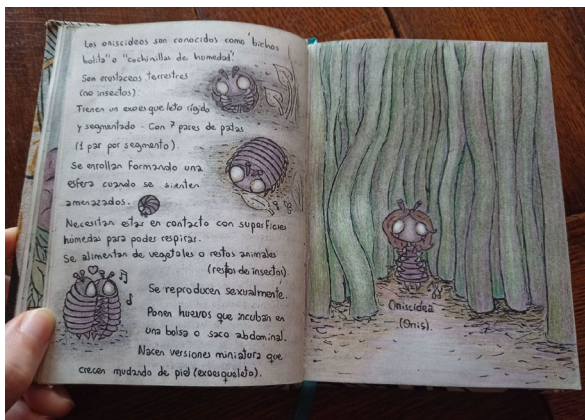 Los oniscideos son conocidos como "bichos
bolita" o "cochinillas de humedad".
Son crustáceos terrestres
(no insectos).
Tienen un exoesqueleto rígido
y segmentado - Con 7 pares de patas
(1 par por segmento).
Se enrollan formando una
esfera cuando se sienten
amenazados.
Necesitan estar en contacto con superficies
húmedas para poder respirar.
Se alimentan de vegetales o restos animales
(restos de insectos).
Se reproducen sexualmente.
Ponen huevos que incuban en
una bolsa o saco abdominal.
Nacen versiones miniatura que
crecen mudando de piel (exoesqueleto).
Oniscidea
(Onis).